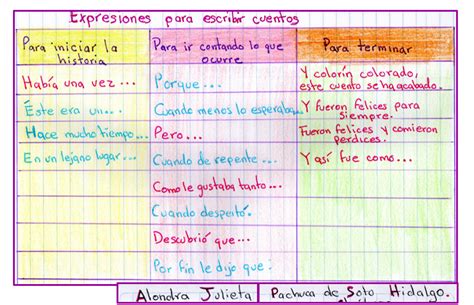 Expresiones para escribir cuentos
Para iniciar la
historia
Para ir contando lo que
ocurre
Para terminar
Había una vez...
Porque...
Y colorín colorado,
este cuento se ha acabado.
Éste era un...
Cuando menos lo esperaba...
Y fueron felices para
siempre.
Hace mucho tiempo...
Pero...
Fueron felices y comieron
perdices.
En un lejano lugar...
Cuando de repente...
Y así fue como...
Como le gustaba tanto...
Cuando despertó.
Descubrió que...
Por fin le dijo que:
Alondra Julieta
Pachuca de Soto Hidalgo.